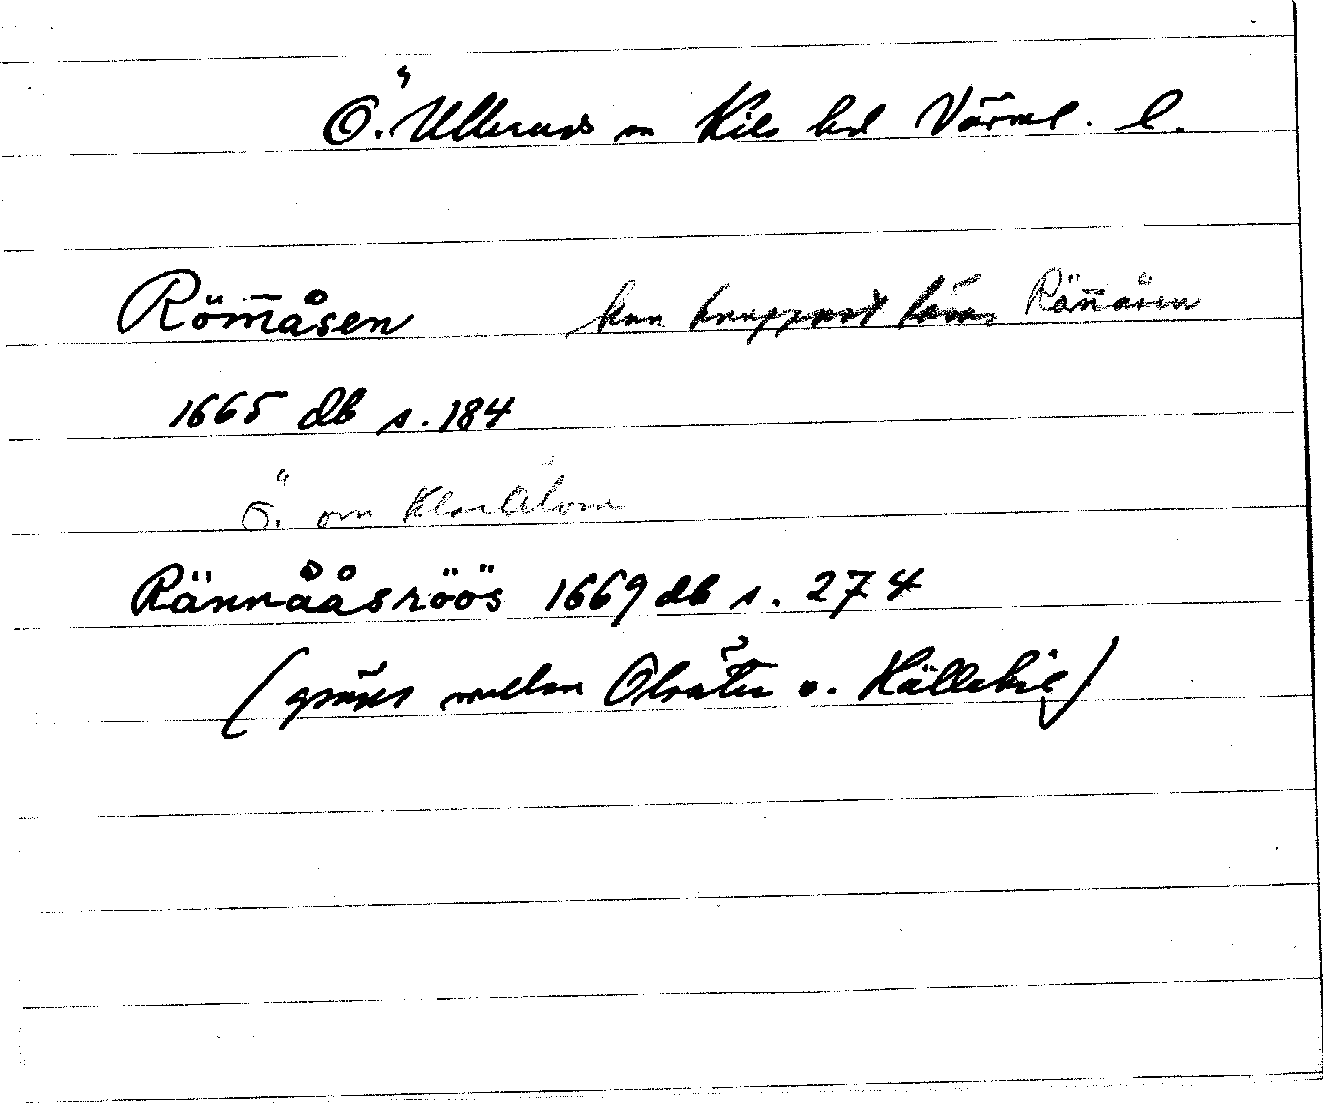 Ö. Ullerud sn Kils hd Värml. l.
Röm̄åsen kan knappast läsas Rän̄åsen
1665 db s. 184
Ö. om Klarälven
Rännååsröös 1669 db s. 274
(gräns mellan Olsäter o. Hällekil)